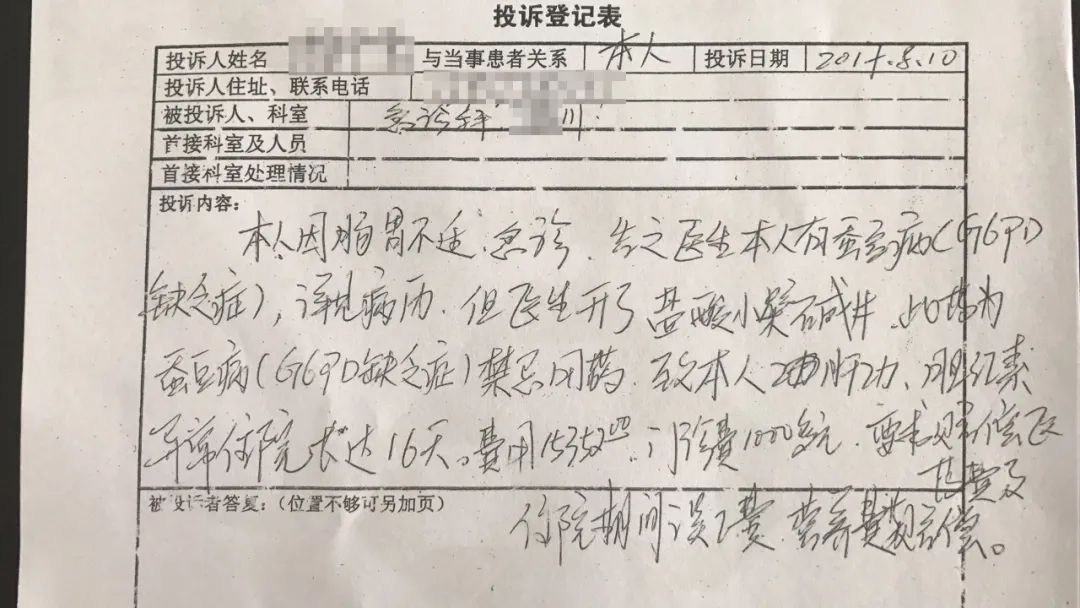 投诉登记表
投诉人姓名 与当事患者关系 本人 投诉日期 2017.8.10
投诉人住址、联系电话
被投诉人、科室 急诊科 川
首接科室及人员
首接科室处理情况
投诉内容:
本人因肠胃不适.急诊.告之医生本人有蚕豆病(G6PD
缺乏症),详见病历.但医生开了盐酸小檗碱片.此药为
蚕豆病(G6PD缺乏症)禁忌用药.至本人肝功、胆红素
异常住院长达16天。费用15352.00.门诊费1000多元.要求赔偿医
药费及
被投诉者答复:(位置不够可另加页)
住院期间误工费.营养费赔偿。